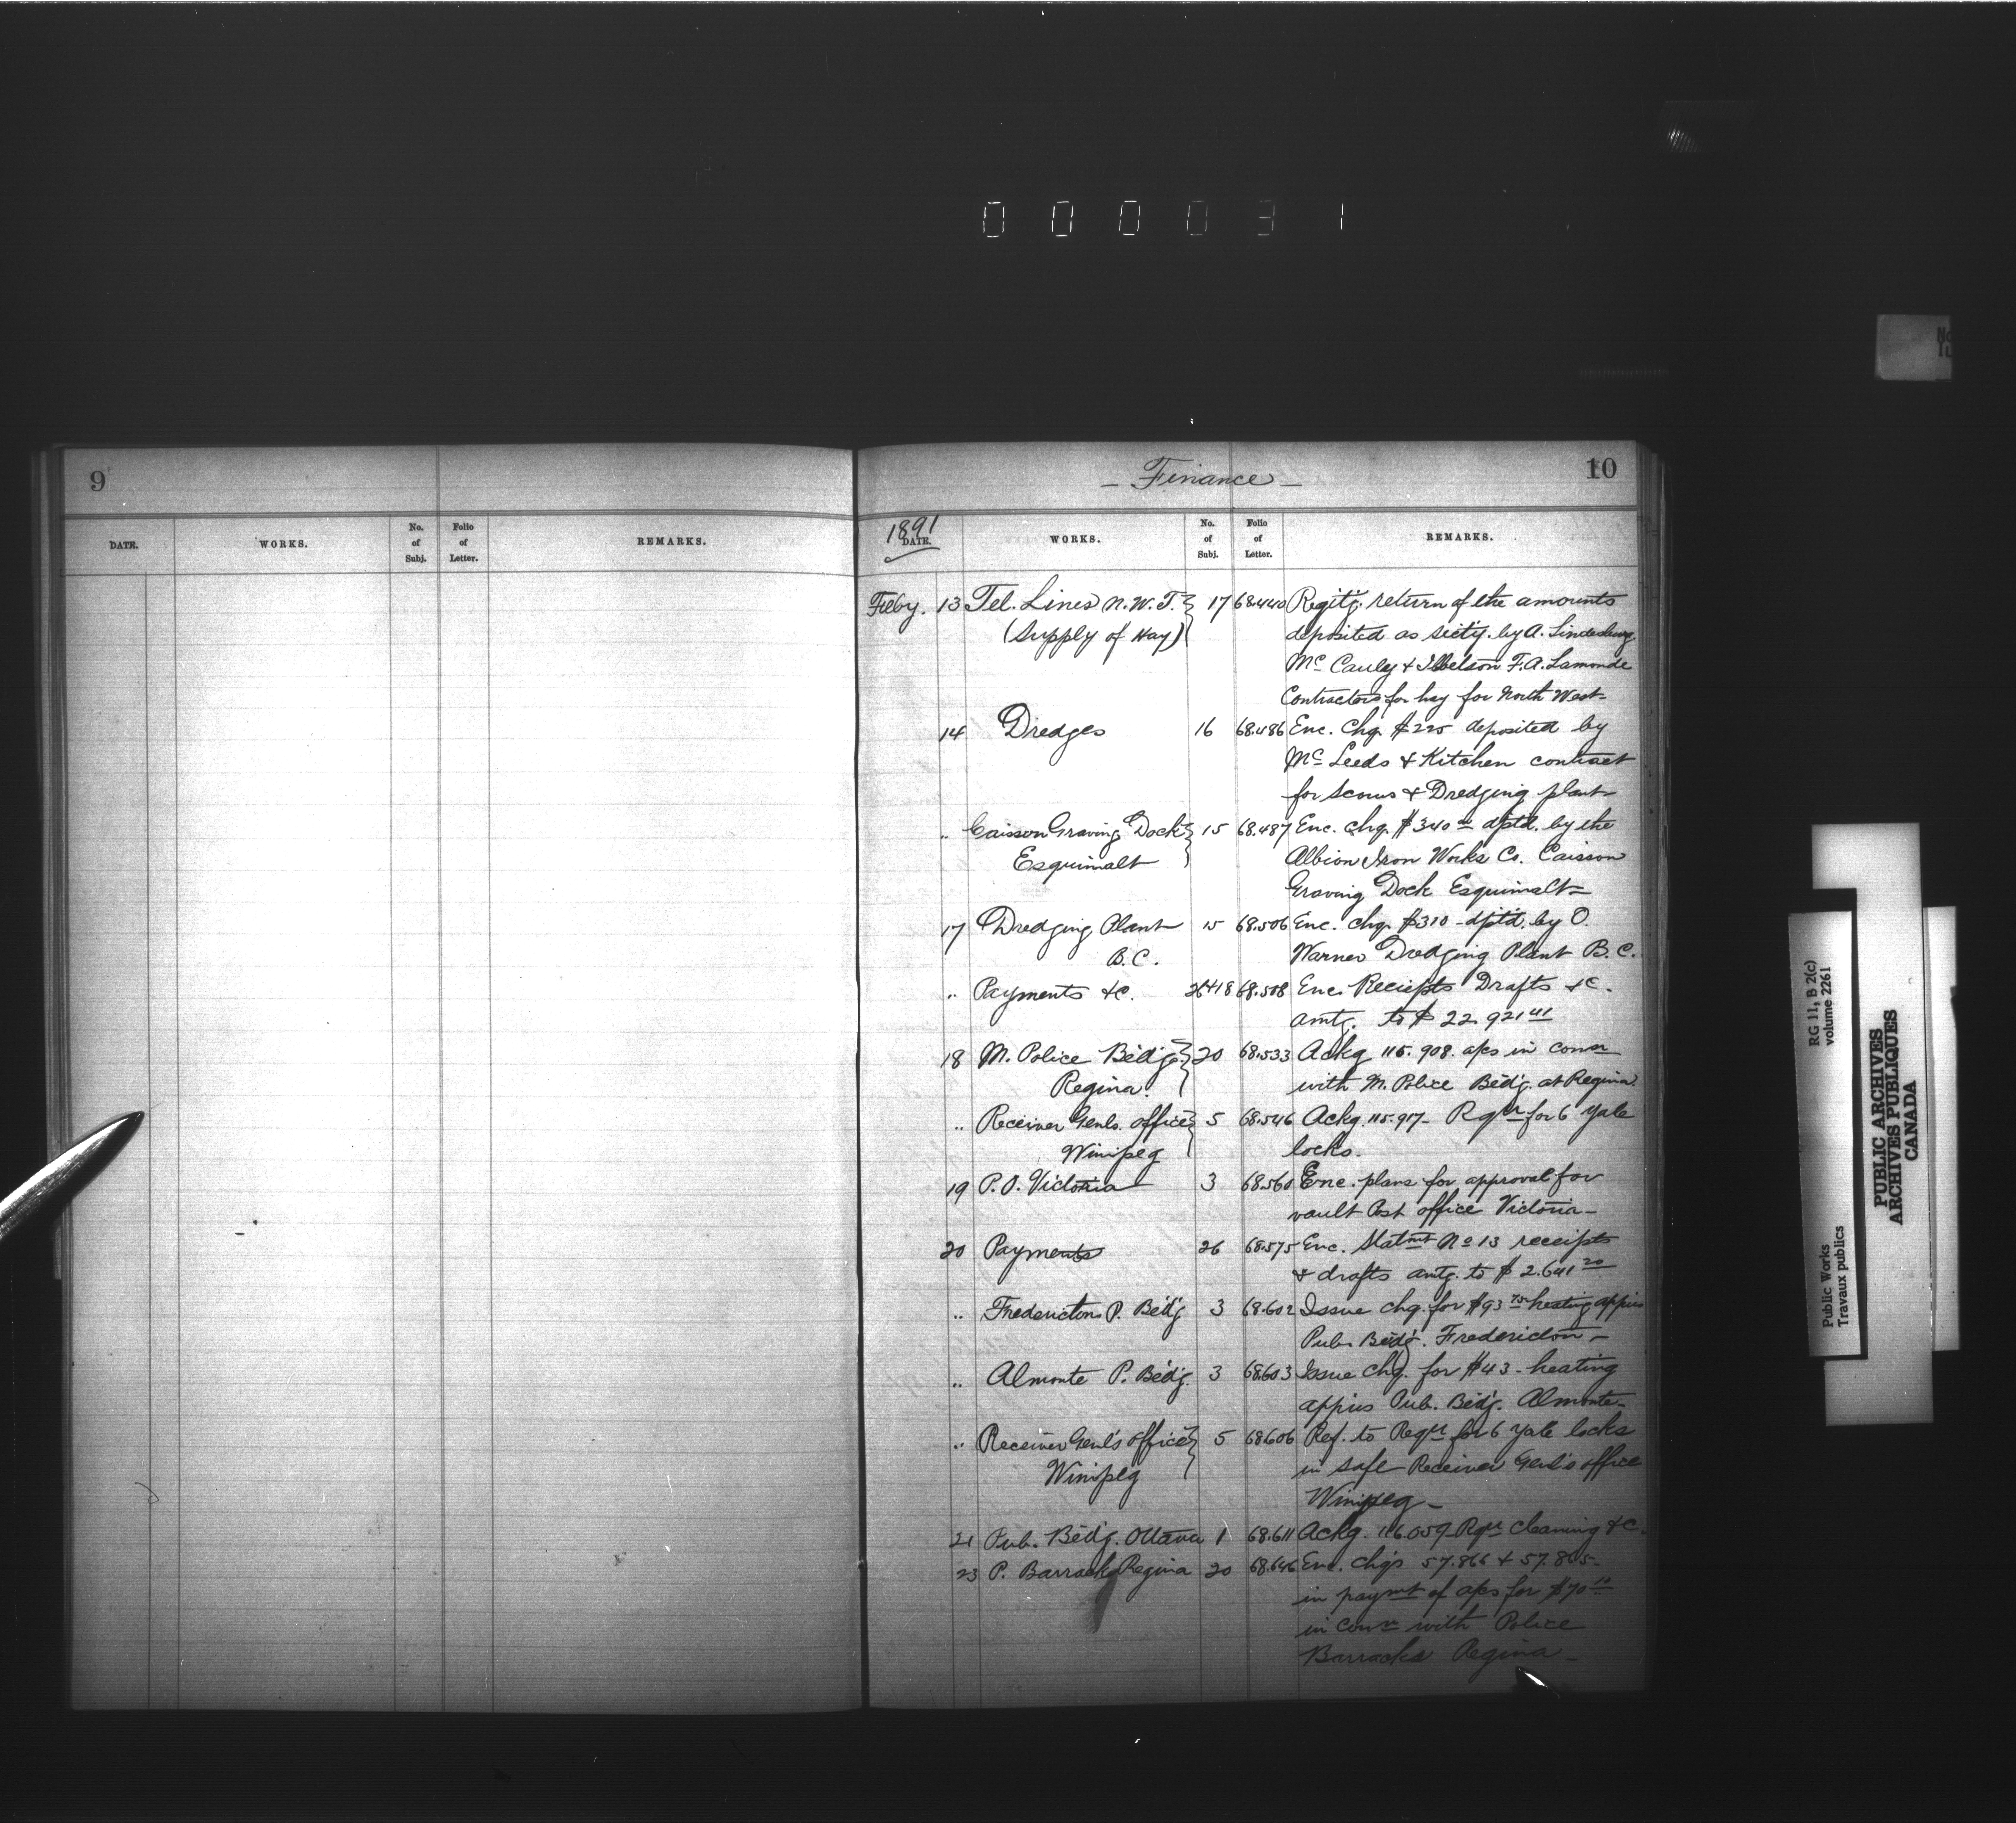 0 0 0 0 3 1
9
DATE. WORKS. No. of Subj. Folio of Letter. REMARKS.
— Finance — 10
1891
DATE. WORKS. No. of Subj. Folio of Letter. REMARKS.
Feby. 13 Tel. Lines N.W.T. } 17 68.440 Regitg. return of the amounts
(Supply of Hay) deposited as secty. by A.
Mc Cauly & Ibbelson F.A. Lamonde
Contractors for hay for North West—
14 Dredges 16 68.486 Enc. Chq. $225 deposited by
Mc Leeds & Kitchen contract
for Scows & Dredging plant—
" Caisson Graving Dock } 15 68.487 Enc. chq. $340 00 dptd. by the
Esquimalt Albion Iron Works Co. Caisson
Graving Dock Esquimalt—
17 Dredging Plant 15 68.506 Enc. chq. $310 - dptd. by O.
B.C. Warner Dredging Plant B.C.
" Payments &c. 26+18 68.508 Enc. Reciepts Drafts &c.
amtg. to $ 22 921 41
18 M. Police Bldg. } 20 68.533 Ackg 115.908. a/cs in conn
Regina. with M. Police Bldg. at Regina.
" Receiver Genls. office } 5 68.546 Ackg. 115.917— Rqn for 6 Yale
Winipeg locks.
19 P.O. Victoria 3 68.560 Enc. plans for approval for
vault Post office Victoria—
20 Payments 26 68.575 Enc. Statmt No 13 receipts
& drafts amtg. to $ 2.641 20
" Fredericton P. Bldg 3 68.602 Issue chq. for $93 75 heating appus
Pub. Bldg. Fredericton—
" Almonte P. Bldg. 3 68.603 Issue chq. for $43 - heating
appus Pub. Bldg. Almonte—
" Receiver Genl's office } 5 68.606 Ref. to Reqn for 6 Yale locks
Winipeg in safe Receiver Genl's office
Winipeg—
21 Pub. Bldg. Ottawa 1 68.611 Ackg. 116.059 Rqn cleaning &c.
23 P. Barracks Regina 20 68.646 Enc. chqs 57.866 & 57.865—
in paymt of a/cs for $70
in conn with Police
Barracks Regina—
RG 11, B 2(c)
volume 2261
Public Works
Travaux publics
PUBLIC ARCHIVES
ARCHIVES PUBLIQUES
CANADA